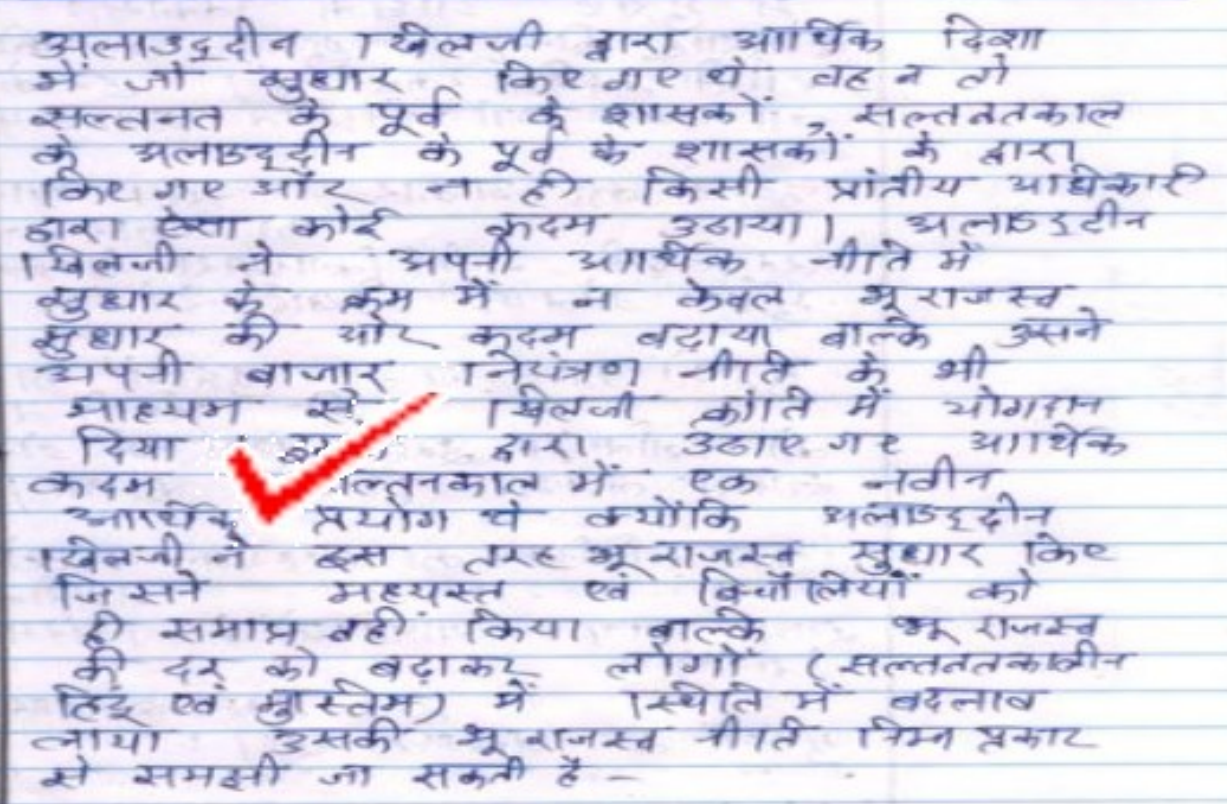 अलाउद्दीन खिलजी द्वारा आर्थिक दिशा
में जो सुधार किए गए थे वह न तो
सल्तनत के पूर्व के शासकों, सल्तनतकाल
के अलाउद्दीन के पूर्व के शासकों के द्वारा
किए गए और न ही किसी प्रांतीय अधिकारी
द्वारा ऐसा कोई कदम उठाया। अलाउद्दीन
खिलजी ने अपनी आर्थिक नीति में
सुधार के क्रम में न केवल भू राजस्व
सुधार की ओर कदम बढ़ाया बल्कि उसने
अपनी बाजार नियंत्रण नीति के भी
माध्यम से खिलजी क्रांति में योगदान
दिया द्वारा उठाए गए आर्थिक
कदम सल्तनकाल में एक नवीन
आर्थिक प्रयोग थे क्योंकि अलाउद्दीन
खिलजी ने इस तरह भू राजस्व सुधार किए
जिसने मध्यस्त एवं बिचौलियों को
ही समाप्त नहीं किया बल्कि भू राजस्व
की दर को बढ़ाकर लोगों (सल्तनतकालीन
हिंदू एवं मुस्लिम) में स्थिति में बदलाव
लाया उसकी भू राजस्व नीति निम्न प्रकार
से समझी जा सकती है -